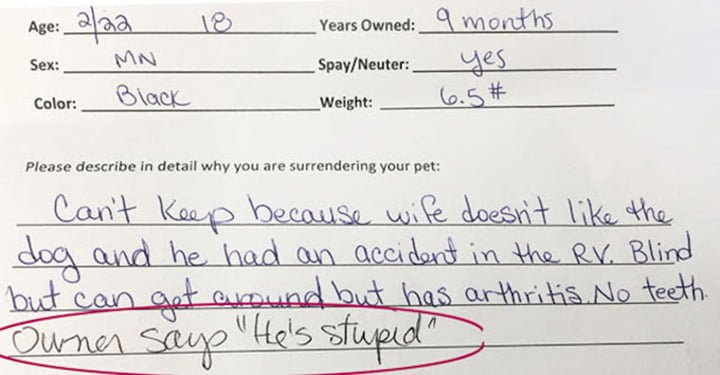 Age: 2/22 18 Years Owned: 9 months
Sex: MN Spay/Neuter: yes
Color: Black Weight: 6.5#
Please describe in detail why you are surrendering your pet:
Can't keep because wife doesn't like the
dog and he had an accident in the RV. Blind
but can get around but has arthritis. No teeth.
Owner says "He's stupid"